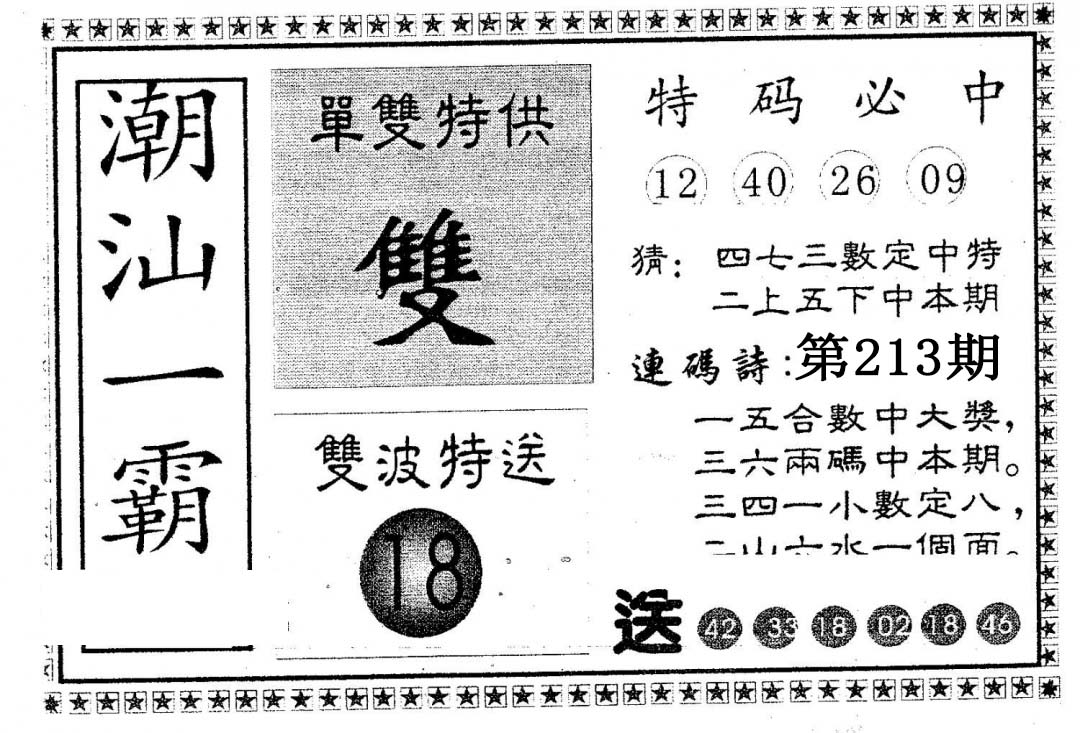 潮汕一霸
單雙特供
雙
雙波特送
18
特码必中
12 40 26 09
猜：四七三數定中特
二上五下中本期
連碼詩：第213期
一五合數中大獎，
三六兩碼中本期。
三四一小數定八，
二山六水一個面。
送 42 33 18 02 18 46